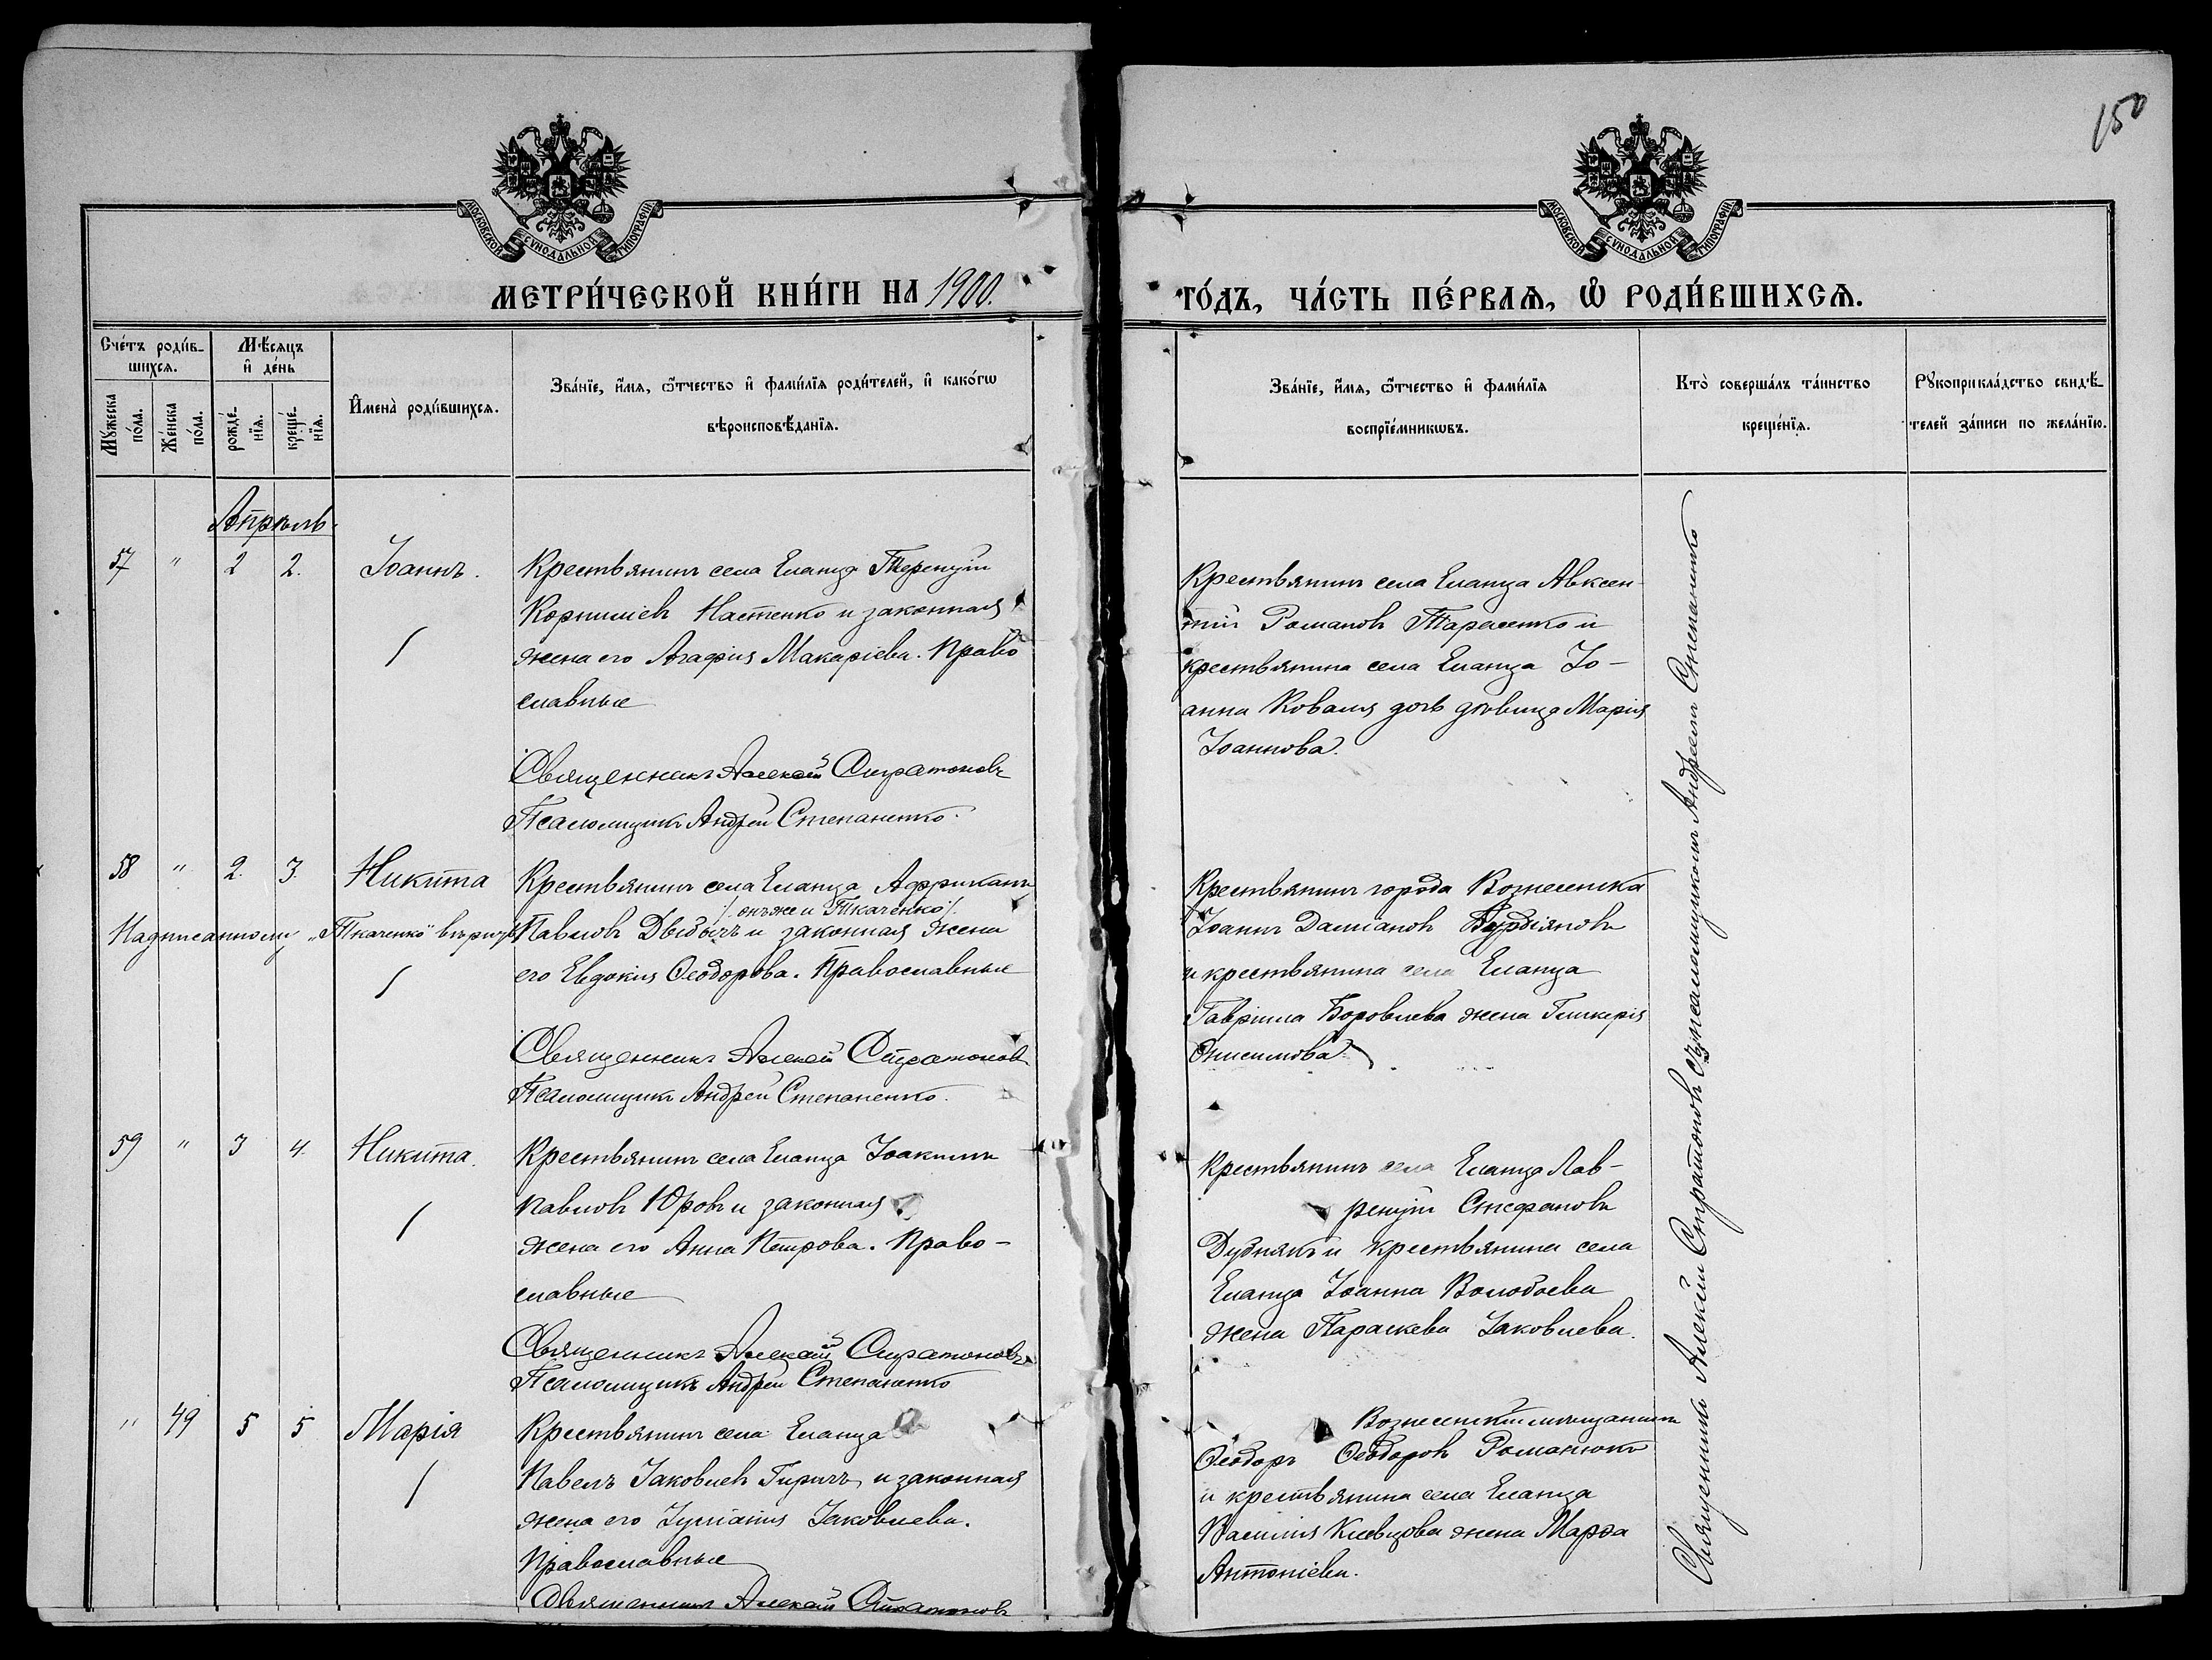 150
МОСКОВСКОЙ СУНОДАЛЬНОЙ ТИПОГРАФІИ
МОСКОВСКОЙ СУНОДАЛЬНОЙ ТИПОГРАФІИ
МЕТРИ́ЧЕСКОЙ КНИ́ГИ НА 1900.
ГО́ДЪ, ЧА́СТЬ ПЕ́РВАѦ, Ѽ РОДИ́ВШИХСѦ.
Сче́тъ роди́в-
шихсѧ.
Мѣ́сѧцъ
и де́нь
Мꙋ́жеска
по́ла.
Же́нска
по́ла.
рожде́-
нїѧ.
креще́-
нїѧ.
И҆мена̀ роди́вшихсѧ.
Зва́нїе, и҆́мѧ, ѻ҆́тчество и҆ фами́лїѧ роди́телей, и҆ како́гѡ
вѣроисповѣ́данїѧ.
Зва́нїе, и҆́мѧ, ѻ҆́тчество и҆ фами́лїѧ
воспрїе́мникѡвъ.
Кто̀ соверша́лъ та́инство
креще́нїѧ.
Рꙋкоприкла́дство свидѣ́-
телей за́писи по жела́нїю.
Апрѣль
57 " 2 2. Іоаннъ.
Крестьянинъ села Еланца Терентій
Корниліевъ Настенко и законная
жена его Агафія Макаріева. Право
славные
Священникъ Алексій Стратоновъ
Псаломщикъ Андрей Степаненко.
Крестьянинъ села Еланца Авксен-
тій Романовъ Тарасенко и
крестьянина села Еланца Іо-
анна Коваля дочь дѣвица Марія
Іоаннова.
58 " 2. 3. Никита
Крестьянинъ села Еланца Африканъ
/. онъ же и Ткаченко ./
Надписанному „Ткаченко" вѣрить
Павловъ Двибычъ и законная жена
его Евдокія Ѳеодорова. Православные
Священникъ Алексій Стратоновъ
Псаломщикъ Андрей Степаненко.
Крестьянинъ города Вознесенска
Іоаннъ Даміановъ Бурдіяновъ
и крестьянина села Еланца
Гавріила Боровлева жена Гликерія
Онисимова.
59 " 3 4. Никита.
Крестьянинъ села Еланца Іоакимъ
Павловъ Юровъ и законная
жена его Анна Петрова. Право-
славные
Священникъ Алексій Стратоновъ
Псаломщикъ Андрей Степаненко
Крестьянинъ села Еланца Лав-
рентій Стефановъ
Дубнякъ и крестьянина села
Еланца Іоанна Волобоева
жена Параскева Іаковлева.
" 49 5 5 Марія
Крестьянинъ села Еланца
Павелъ Іаковлевъ Гиричъ и законная
жена его Іуліанія Іаковлева.
Православные
Священникъ Алексій Стратоновъ
Вознесенскій мѣщанинъ
Ѳеодоръ Ѳеодоровъ Романюкъ
и крестьянина села Еланца
Василія Клевцова жена Марѳа
Антоніева.
Священникъ Алексій Стратоновъ съ псаломщикомъ Андреемъ Степаненко